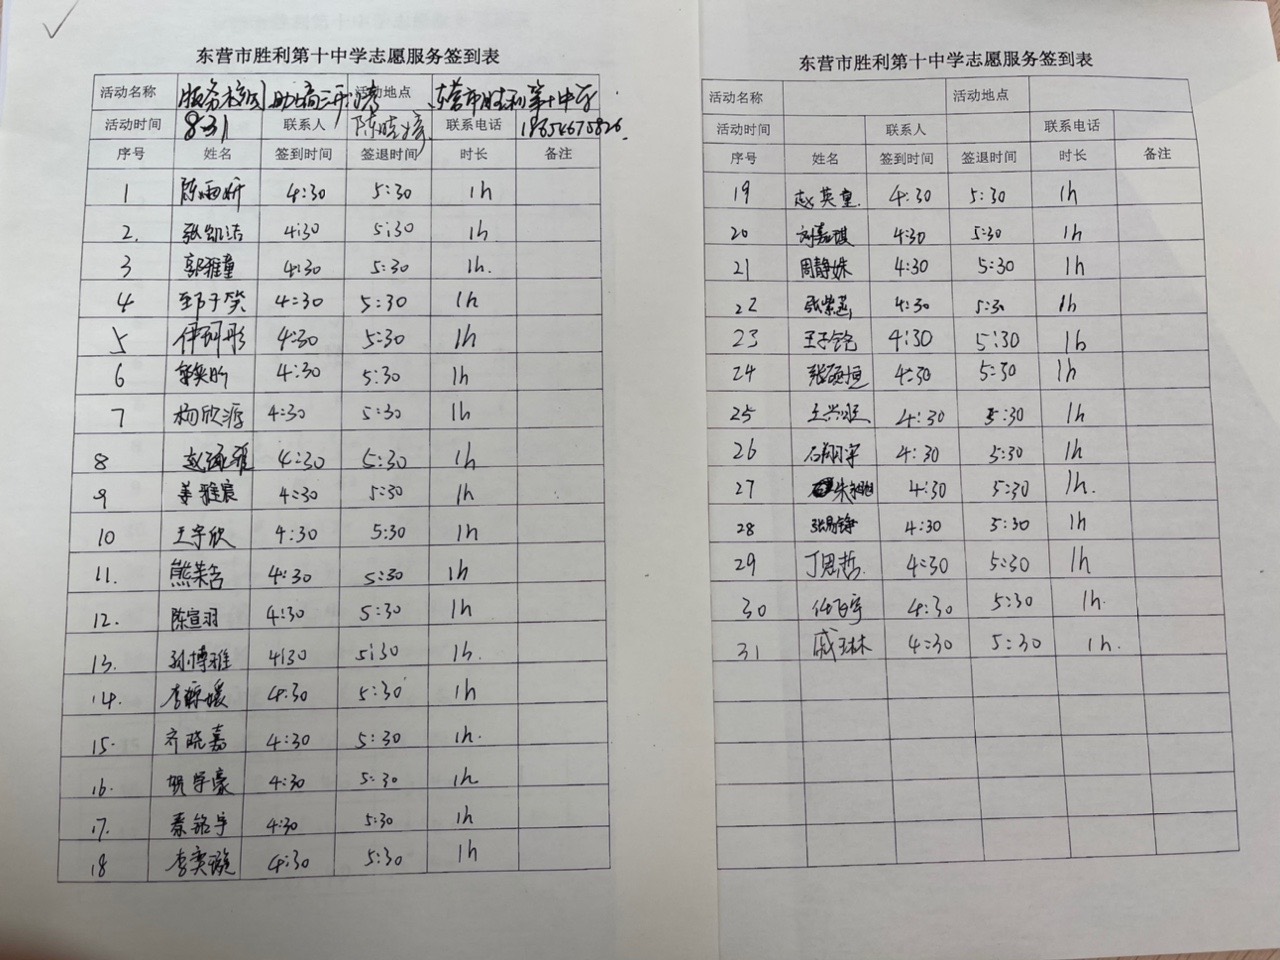 东营市胜利第十中学志愿服务签到表
活动名称 服务校园 助
活动地点 东营市胜利第十中学
活动时间 8.31 联系人 陈晓婷 联系电话
序号 姓名 签到时间 签退时间 时长 备注
1 陈雨妍 4:30 5:30 1h
2. 张凯洁 4:30 5:30 1h
3 郭雅童 4:30 5:30 1h.
4 子笑 4:30 5:30 1h
5 伊珂彤 4:30 5:30 1h
6 4:30 5:30 1h
7 杨欣源 4:30 5:30 1h
8 赵 雅 4:30 5:30 1h
9 姜雅宸 4:30 5:30 1h
10 王宇欣 4:30 5:30 1h
11. 熊荣 4:30 5:30 1h
12. 陈宣羽 4:30 5:30 1h
13. 孙博雅 4:30 5:30 1h.
14. 李 媛 4:30 5:30 1h
15. 齐晓嘉 4:30 5:30 1h.
16. 胡宇豪 4:30 5:30 1h
17. 秦铭宇 4:30 5:30 1h
18 李奕璇 4:30 5:30 1h
东营市胜利第十中学志愿服务签到表
活动名称 活动地点
活动时间 联系人 联系电话
序号 姓名 签到时间 签退时间 时长 备注
19 赵英童 4:30 5:30 1h
20 刘嘉琪 4:30 5:30 1h
21 周静姝 4:30 5:30 1h
22 张紫菡 4:30 5:30 1h
23 王子铭 4:30 5:30 1h
24 张硕恒 4:30 5:30 1h
25 王兴旺 4:30 5:30 1h
26 石翔宇 4:30 5:30 1h
27 朱 4:30 5:30 1h.
28 张易铮 4:30 5:30 1h
29 丁思哲. 4:30 5:30 1h
30 任飞宇 4:30 5:30 1h.
31 戚玉林 4:30 5:30 1h.